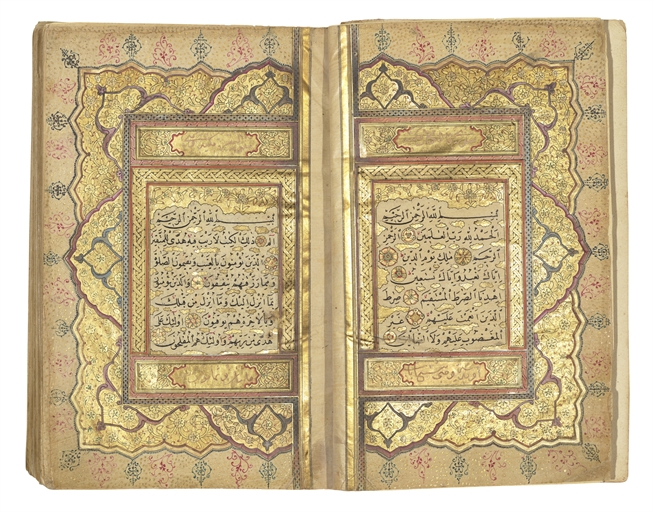 بسم الله الرحمن الرحيم
الحمد لله رب العلمين الرحمن
الرحيم ملك يوم الدين
اياك نعبد واياك نستعين
اهدنا الصرط المستقيم صرط
الذين انعمت عليهم غير
المغضوب عليهم ولا الضالين
بسم الله الرحمن الرحيم
الم ذلك الكتب لا ريب فيه هدى للمتقين
الذين يؤمنون بالغيب ويقيمون الصلوة
ومما رزقنهم ينفقون والذين يؤمنون
بما انزل اليك وما انزل من قبلك
وبالاخرة هم يوقنون اولئك على
هدى من ربهم واولئك هم المفلحون